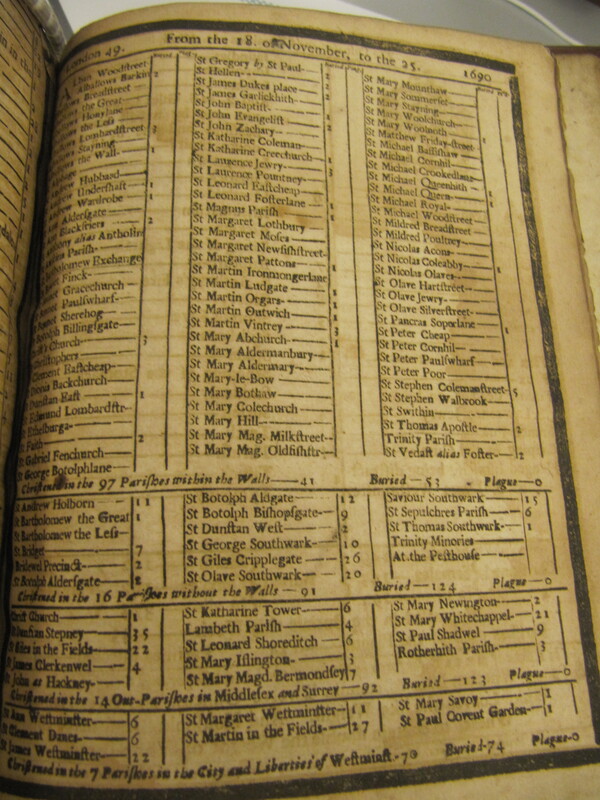 London 49. From the 18. of November, to the 25. 1690
Woodstreet
Alhallows Barkin 2
Breadstreet
the Great 1
Honylane
the Less
Lombardstreet
Stayning
the Wall 1
Hubbard
Undershaft 1
Wardrobe 1
Aldersgate
Blackfriers 2
alias Antholin
Parish
Exchange
Finck
Gracechurch
Paulswharf
Sherehog
Billingsgate
Church 3
Eastcheap
Backchurch
Dunstan East 1
Edmund Lombardstr
Ethelburga
St Faith 2
St Gabriel Fenchurch
St George Botolphlane
St Gregory by St Paul 2
St Hellen
St James Dukes place 2
St James Garlickhith
St John Baptist
St John Evangelist
St John Zachary
St Katharine Coleman
St Katharine Creechurch
St Laurence Jewry
St Laurence Pountney
St Leonard Eastcheap
St Leonard Fosterlane
St Magnus Parish
St Margaret Lothbury
St Margaret Moses
St Margaret Newfishstreet
St Margaret Pattons
St Martin Ironmongerlane
St Martin Ludgate
St Martin Orgars
St Martin Outwich
St Martin Vintrey
St Mary Abchurch
St Mary Aldermanbury
St Mary Aldermary
St Mary-le-Bow
St Mary Bothaw
St Mary Colechurch
St Mary Hill
St Mary Mag. Milkstreet
St Mary Mag. Oldfishstr
St Mary Mounthaw
St Mary Sommerset
St Mary Stayning
St Mary Woolchurch
St Mary Woolnoth
St Matthew Friday-street
St Michael Bassishaw
St Michael Cornhil
St Michael Crookedlane
St Michael Queenhith
St Michael Quern
St Michael Royal
St Michael Woodstreet
St Mildred Breadstreet
St Mildred Poultney
St Nicolas Acons
St Nicolas Coleabby
St Nicolas Olaves
St Olave Hartstreet
St Olave Jewry
St Olave Silverstreet
St Pancras Soperlane
St Peter Cheap
St Peter Cornhil
St Peter Paulswharf
St Peter Poor
St Stephen Colemanstreet 5
St Stephen Wallbrook
St Swithin
St Thomas Apostle 2
Trinity Parish
St Vedast alias Foster 2
Christened in the 97 Parishes within the Walls 41 Buried 53 Plague 0
St Andrew Holborn 11
St Bartholomew the Great 1
St Bartholomew the Less
St Bridget 7
Bridewel Precinct 2
St Botolph Aldersgate 8
St Botolph Aldgate 12
St Botolph Bishopsgate 9
St Dunstan West 2
St George Southwark 10
St Giles Cripplegate 26
St Olave Southwark 20
Saviour Southwark 15
St Sepulchres Parish 6
St Thomas Southwark 1
Trinity Minories
At the Pesthouse
Christened in the 16 Parishes without the Walls 91 Buried 124 Plague 0
Christ Church 1
St Dunstan Stepney 35
St Giles in the Fields 22
St James Clerkenwel 4
St John at Hackney
St Katharine Tower 6
Lambeth Parish 4
St Leonard Shoreditch 6
St Mary Islington 3
St Mary Magd. Bermondsey 7
St Mary Newington 2
St Mary Whitechappel 21
St Paul Shadwel 9
Rotherhith Parish 3
Christened in the 14 Out-Parishes in Middlesex and Surrey 92 Buried 123 Plague 0
St Ann Westminster 6
St Clement Danes 6
St James Westminster 22
St Margaret Westminster 11
St Martin in the Fields 27
St Mary Savoy 1
St Paul Covent Garden 1
Christened in the 7 Parishes in the City and Liberties of Westminst. 70 Buried 74 Plague 0